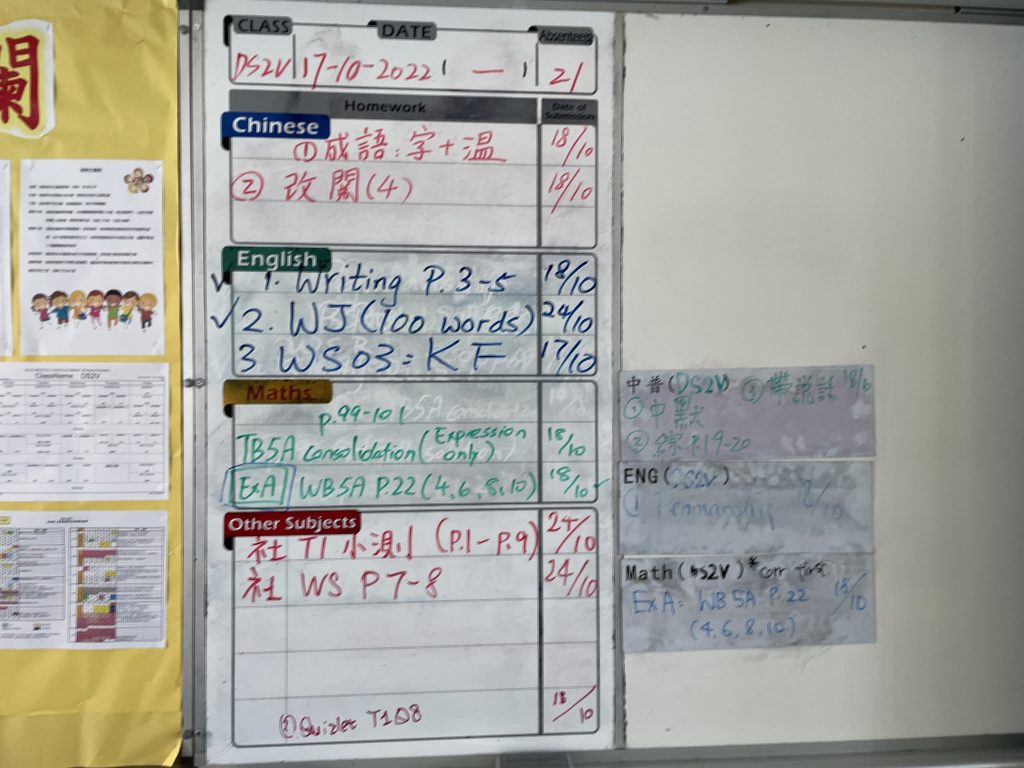 闌
ClassName : DS2V
CLASS DATE Absentees
DS2V 17-10-2022 ( 一 ) 21
Homework Date of Submission
Chinese
① 成語：字+温 18/10
② 改閱(4) 18/10
English
✓ 1. Writing P.3-5 18/10
✓ 2. WJ (100 words) 24/10
3 WS03: KF 17/10
Maths
p.99-101
TB5A consolidation (Expression only) 18/10
ExA WB5A P.22 (4,6,8,10) 18/10
Other Subjects
社 T1 小測 (P.1-P.9) 24/10
社 WS P 7-8 24/10
Quizlet T1Q8 18/10
中普(DS2V) ③ 帶說話 18/10
① 中默
② P.19-20
ENG(DS2V)
① Penmanship
Math(*S2V) *corr first
ExA: WB5A P.22 18/10
(4,6,8,10)